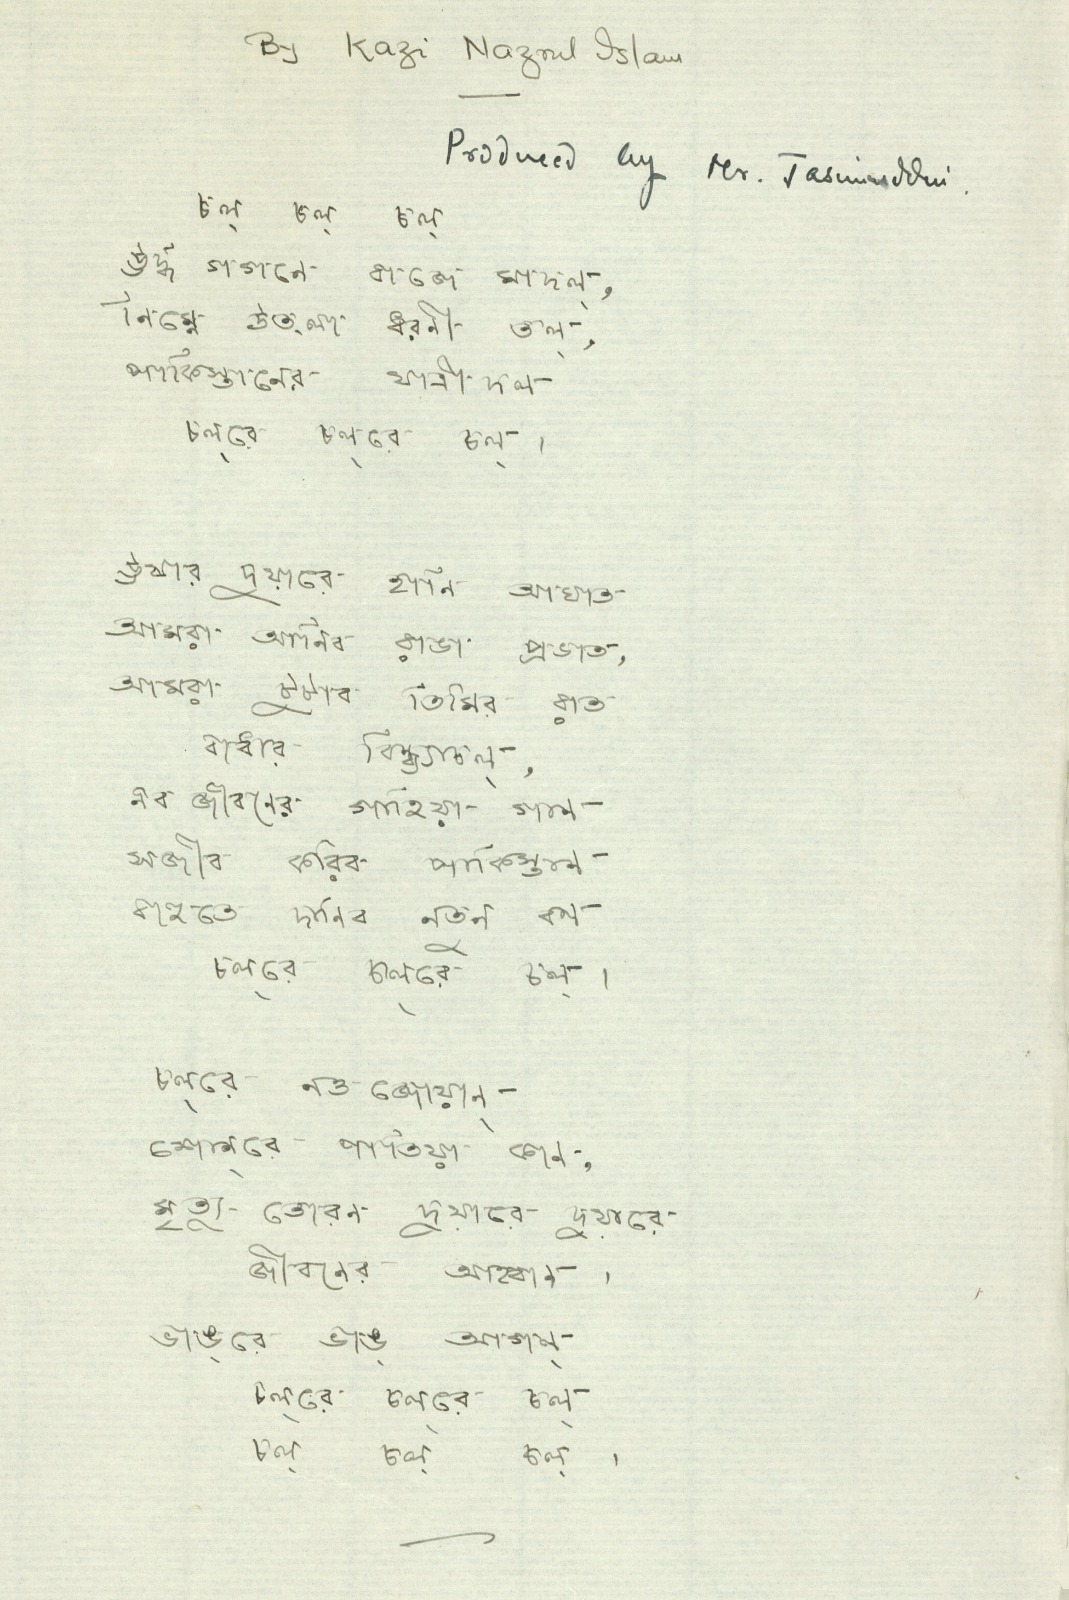 By Kazi Nazrul Islam
Produced by Mr. Jasimuddin.
চল্ চল্ চল্
ঊর্দ্ধ গগনে বাজে মাদল্,
নিম্নে উত্লা ধরনী তল্,
পাকিস্তানের যাত্রী দল
চল্‌রে চল্‌রে চল্।
ঊষার দুয়ারে হানি আঘাত
আমরা আনিব রাঙা প্রভাত,
আমরা টুটাব তিমির রাত
বাধার বিন্ধ্যাচল্,
নব জীবনের গাহিয়া গান
সজীব করিব পাকিস্তান
বাহুতে দানিব নতুন বল
চল্‌রে চল্‌রে চল্।
চল্‌রে নও জোয়ান্
শোন্‌রে পাতিয়া কান,
মৃত্যু তোরন দুয়ারে দুয়ারে
জীবনের আহ্বান।
ভাঙ্‌রে ভাঙ্ আগল্
চল্‌রে চল্‌রে চল্
চল্ চল্ চল্।